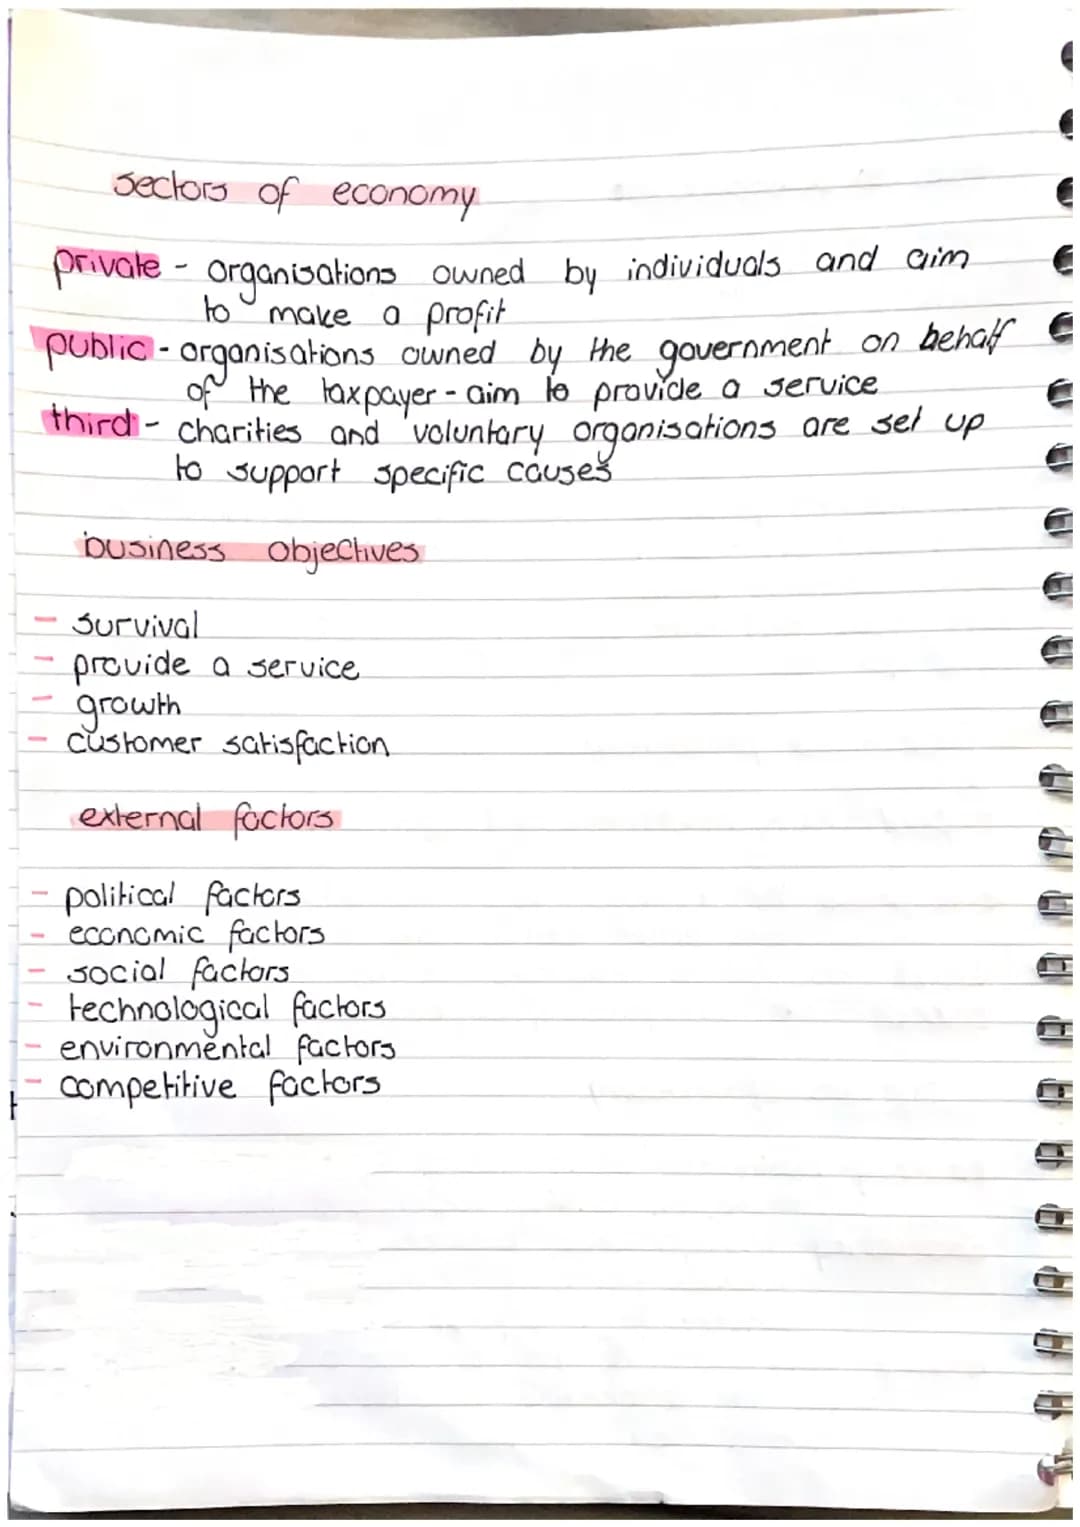 sectors of economy
private - organisations owned by individuals and aim
to make a profit
public - organisations owned by the government on behalf
of the taxpayer - aim to provide a service
third - charities and voluntary organisations are set up
to support specific causes
business objectives
- survival
- provide a service
- growth
- customer satisfaction
external factors
- political factors
- economic factors
- social factors
- technological factors
- environmental factors
- competitive factors